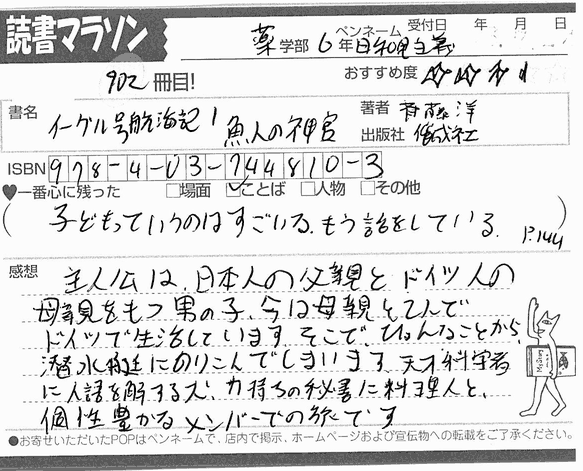 読書マラソン
ペンネーム 受付日 年 月 日
薬学部 6年 日和見主義
902冊目!
おすすめ度 ☆☆☆
書名 イーゲル号航海記1 魚人の神官
著者 斉藤洋
出版社 偕成社
ISBN 978-4-03-744810-3
♥一番心に残った □場面 ☑ことば □人物 □その他
(子どもっていうのはすごいな、もう話をしている。 P.144
感想 主人公は、日本人の父親とドイツ人の
母親をもつ男の子、今は母親と2人で
ドイツで生活しています。そこで、ひょんなことから
潜水艇にのりこんでしまいます。天才科学者
に人語を解する犬、力持ちの秘書に料理人と、
個性豊かなメンバーでの旅です
●お寄せいただいたPOPはペンネームで、店内で掲示、ホームページおよび宣伝物への転載をご了承ください。